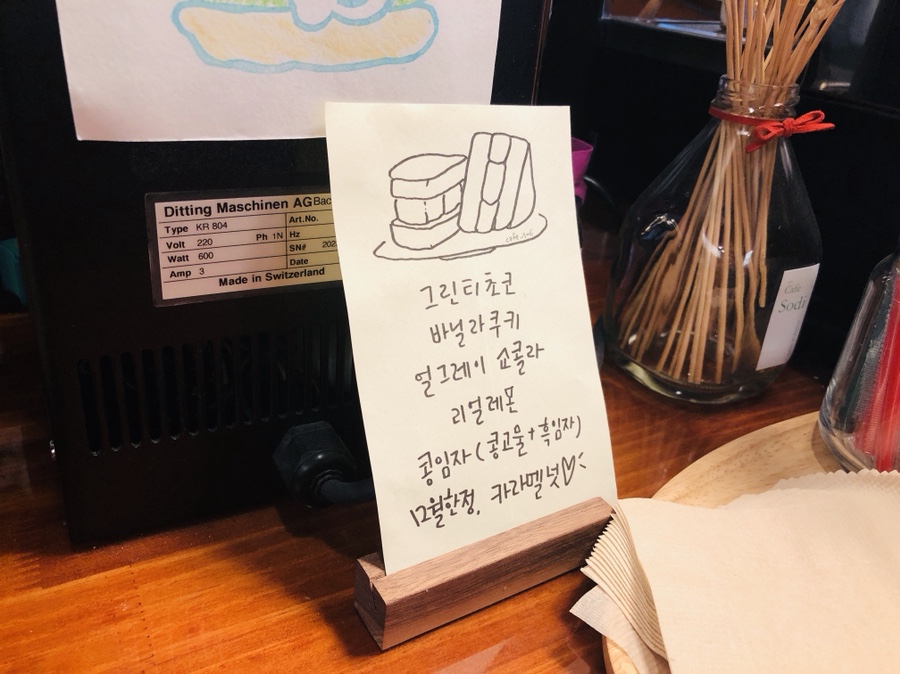 Ditting Maschinen AG Bac
Type KR 804 Art.No.
Volt 220 Ph 1N Hz
Watt 600 SN# 202
Amp 3 Date
Made in Switzerland
그린티초코
바닐라쿠키
얼그레이 쇼콜라
리얼레몬
콩임자 (콩고물+흑임자)
12월한정, 카라멜넛♡
Cafe
Sodi